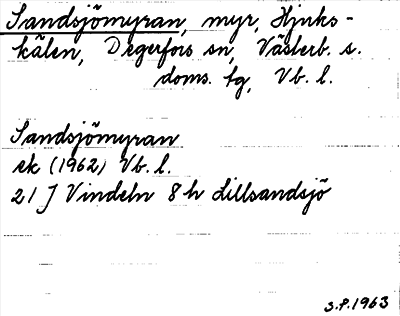 Sandsjömyran, myr, Hjuks-
kälen, Degerfors sn, Västerb. s.
doms. tg, Vb. l.
Sandsjömyran
ek (1962) Vb. l.
21 J Vindeln 8 h Lillsandsjö
S.P. 1963